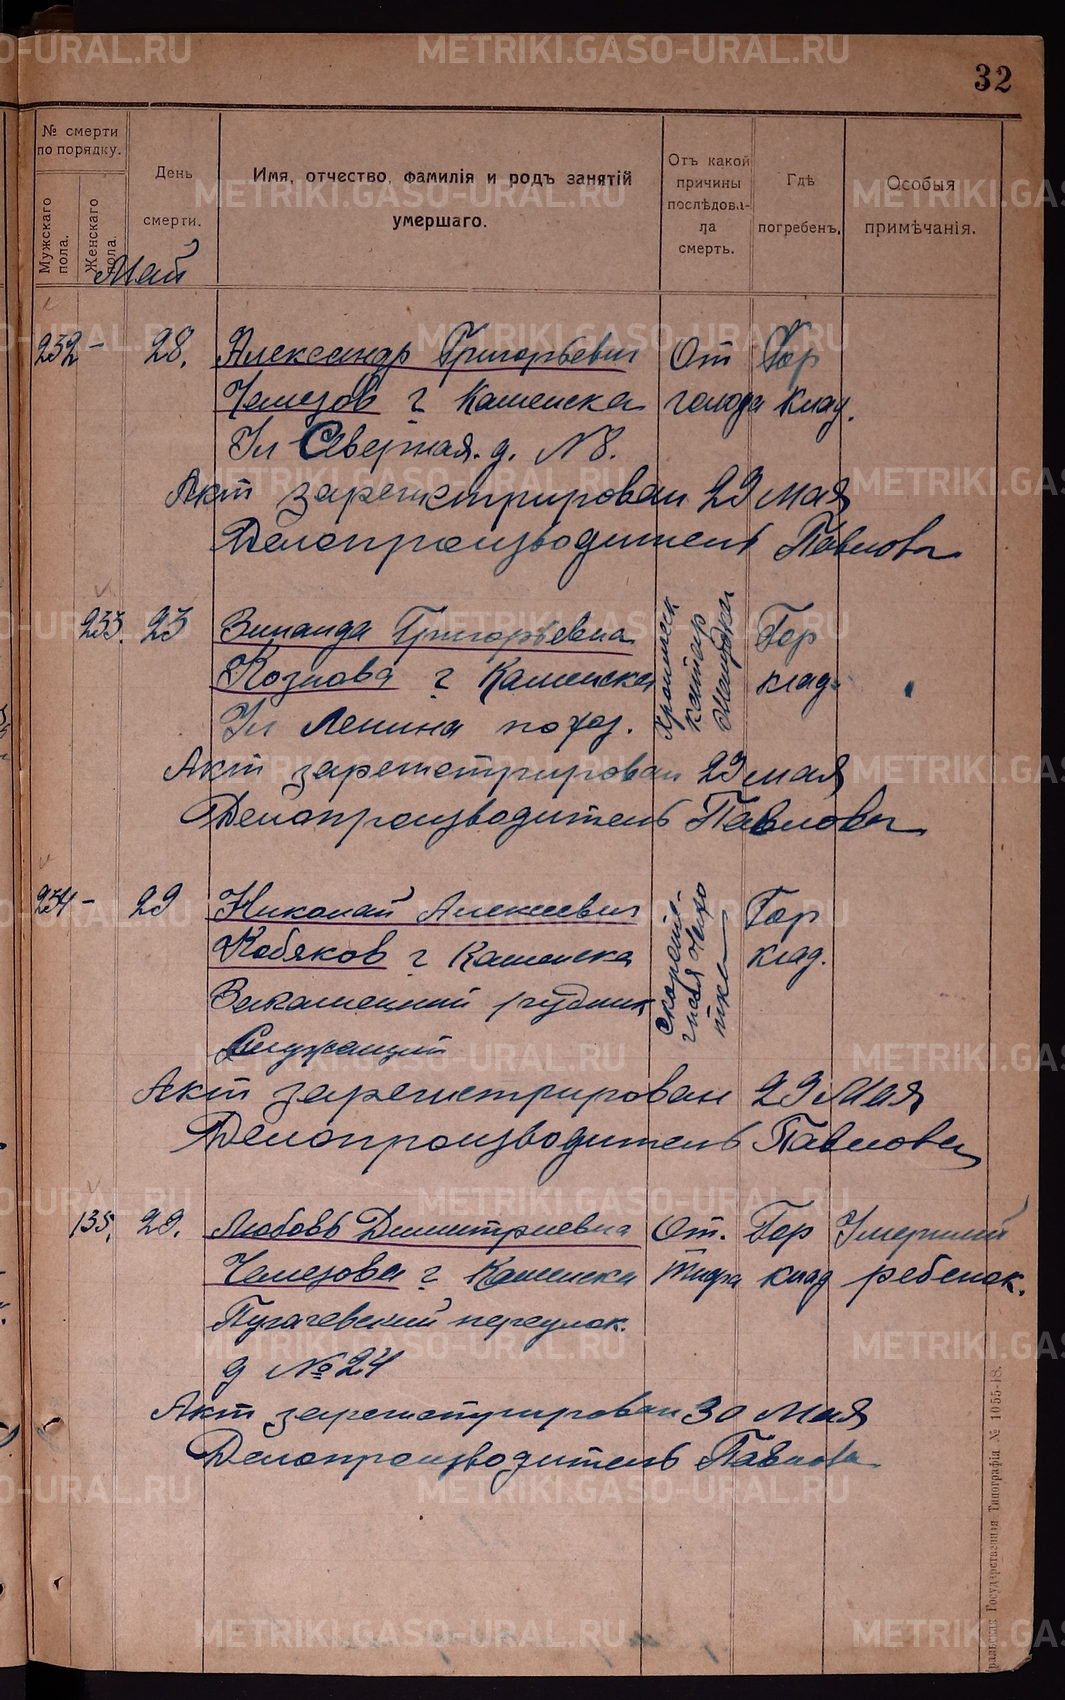 32
№ смерти по порядку.
Мужскаго пола.
Женскаго пола.
День смерти.
Имя, отчество, фамилія и родъ занятій умершаго.
Отъ какой причины послѣдова-ла смерть.
Гдѣ погребенъ.
Особыя примѣчанія.
Май
232 - 28. Александр Григорьевич От Гор
Чемезов г Каменска голода клад.
Ул Северная. д. N 8.
Акт зарегистрирован 29 мая
Делопроизводитель Павлова
233. 23 Зинаида Григорьевна Хроническ катар желудка Гор
Козлова г Каменска клад.
Ул Ленина
Акт зарегистрирован 29 мая
Делопроизводитель Павлова
234 - 29 Николай Алексеевич Гор
Кобяков г Каменска клад.
Закаменный рудник
Служащий
Акт зарегистрирован 29 Мая
Делопроизводитель Павлова
135. 29. Любовь Димитриевна От. Гор Умерший
Чемезова г Каменска Тифа клад ребенок.
Пугачевский переулок.
д № 24
Акт зарегистрирован 30 Мая
Делопроизводитель Павлова
Государственная Типографія № 1055-18.
METRIKI.GASO-URAL.RU